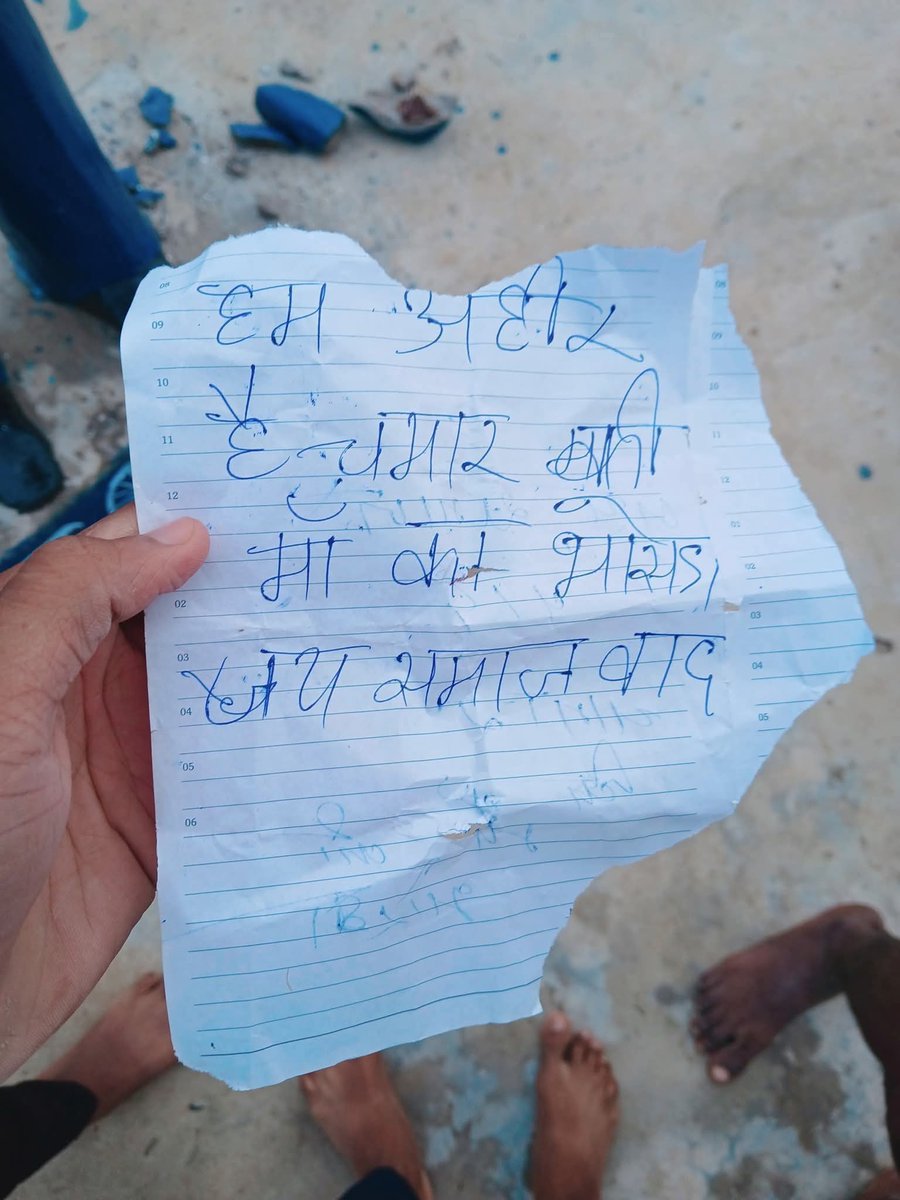 हम अहीर
है चमार की
मा का भोसडा
जय समाजवाद
08
09
10
11
12
02
03
04
05
06
08
09
10
11
12
01
02
03
04
05